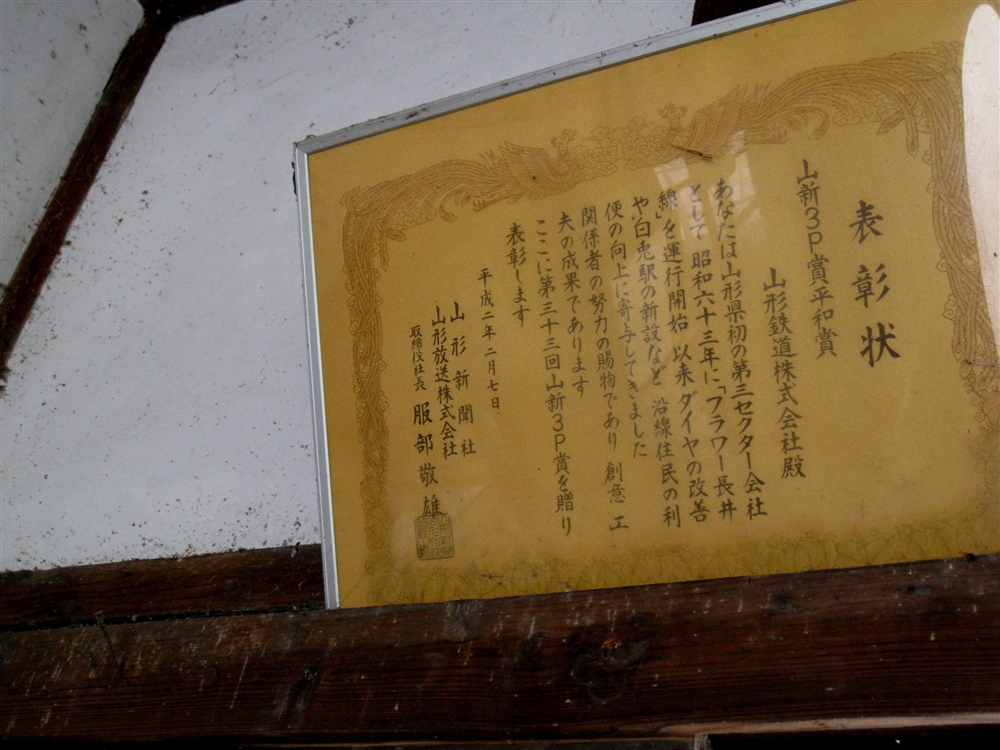 表彰状
山新3P賞平和賞
山形鉄道株式会社殿
あなたは山形県初の第三セクター会社
として 昭和六十三年に「フラワー長井
線」を運行開始 以来ダイヤの改善
や白兎駅の新設など 沿線住民の利
便の向上に寄与してきました
関係者の努力の賜物であり 創意工
夫の成果であります
ここに第三十三回山新3P賞を贈り
表彰します
平成二年二月七日
山形新聞社
山形放送株式会社
取締役社長 服部敬雄